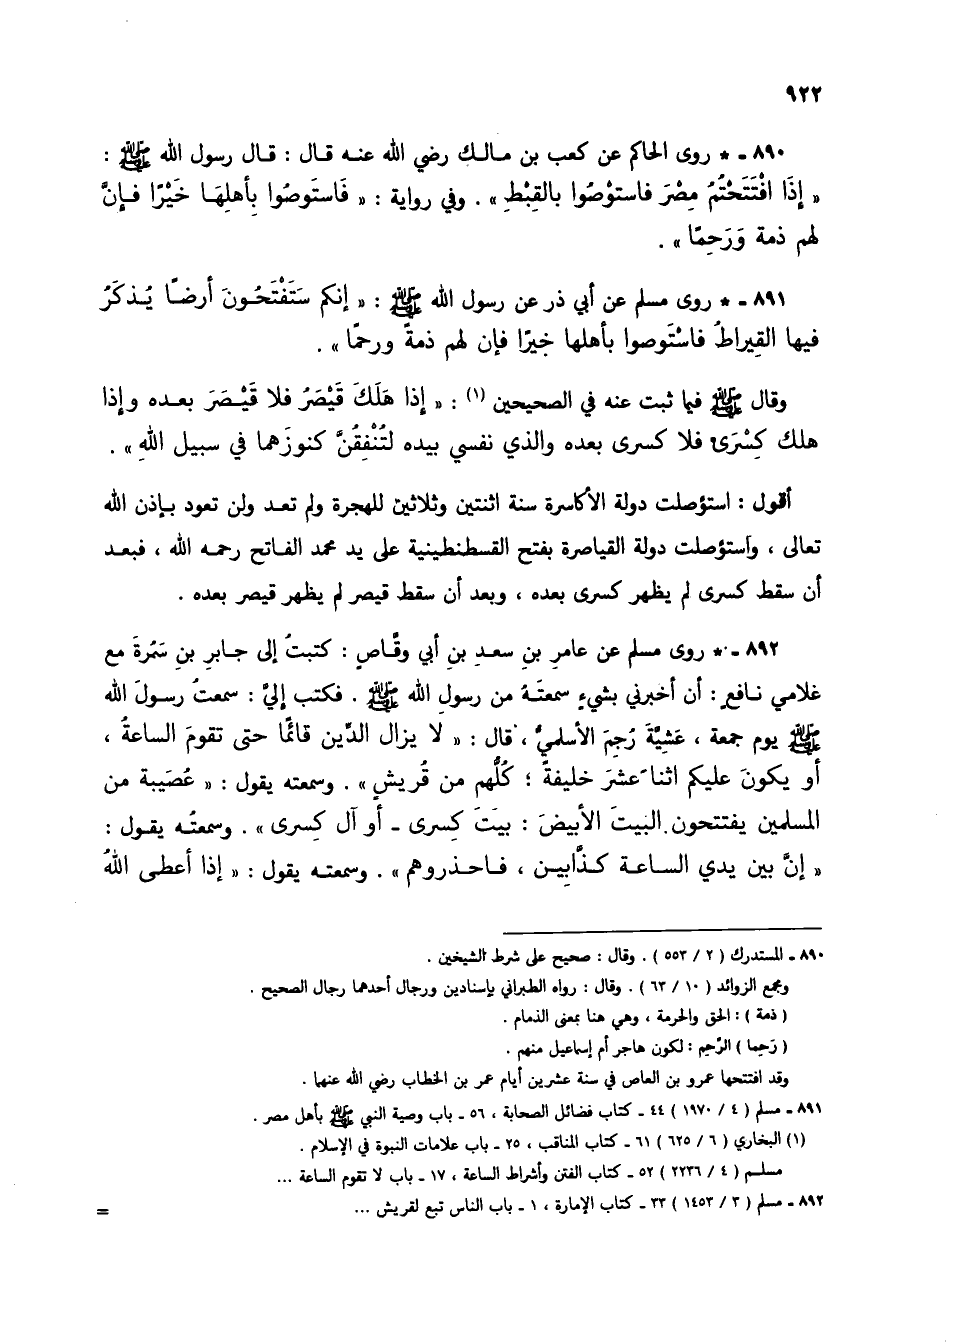 ٩٢٢
٨٩٠ - * روى الحاكم عن كعب بن مالك رضي الله عنه قال : قال رسول الله ﷺ :
« إِذَا افْتَتَحْتُمُ مِصْرَ فاستوْصُوا بالقِبْطِ » . وفي رواية : « فَاستَوصُوا بِأهلِهَا خَيْرًا فإنَّ
لهم ذمة وَرَحِمًا » .
٨٩١ - * روى مسلم عن أبي ذر عن رسول الله ﷺ : « إنكم سَتَفْتَحُونَ أرضًا يُذكَرُ
فيها القيراطُ فاسْتَوصوا بأهلها خيرًا فإن لهم ذمةً ورحمًا » .
وقال ﷺ فيما ثبت عنه في الصحيحين (١) : « إذا هَلَكَ قَيْصَرُ فلا قَيْصَرَ بعده وإذا
هلك كِسْرَى فلا كسرى بعده والذي نفسي بيده لتُنْفِقُنَّ كنوزَهما في سبيل اللهِ » .
أقول : استؤصلت دولة الأكاسرة سنة اثنتين وثلاثين للهجرة ولم تعد ولن تعود بإذن الله
تعالى ، واستؤصلت دولة القياصرة بفتح القسطنطينية على يد محمد الفاتح رحمه الله ، فبعد
أن سقط كسرى لم يظهر كسرى بعده ، وبعد أن سقط قيصر لم يظهر قيصر بعده .
٨٩٢ - * روى مسلم عن عامرِ بنِ سعدِ بنِ أبي وقَّاصٍ : كتبتُ إلى جابرِ بنِ سَمُرةَ مع
غلامي نافعٍ : أن أخبرني بشيءٍ سمعتَهُ من رسولِ الله ﷺ . فكتب إليَّ : سمعتُ رسولَ الله
ﷺ يوم جمعة ، عَشِيَّةَ رُجِمَ الأسلميُّ ، قال : « لا يزال الدِّين قائمًا حتى تقومَ الساعةُ ،
أو يكونَ عليكم اثنا عَشرَ خليفةً ؛ كُلُّهم من قُريشٍ » . وسمعته يقول : « عُصَيبة من
المسلمين يفتتحون البيتَ الأبيضَ : بيتَ كِسرى - أو آل كِسرى » . وسمعتُه يقول :
« إنَّ بين يدي الساعة كذَّابين ، فاحذروهم » . وسمعته يقول : « إذا أعطى اللهُ
٨٩٠ - المستدرك ( ٢ / ٥٥٣ ) . وقال : صحيح على شرط الشيخين .
ومجمع الزوائد ( ١٠ / ٦٣ ) . وقال : رواه الطبراني بإسنادين ورجال أحدهما رجال الصحيح .
( ذمة ) : الحق والحرمة ، وهي هنا بمعنى الذمام .
( رَحِما ) الرَّحِم : لكون هاجر أم إسماعيل منهم .
وقد افتتحها عمرو بن العاص في سنة عشرين أيام عمر بن الخطاب رضي الله عنهما .
٨٩١ - مسلم ( ٤ / ١٩٧٠ ) ٤٤ - كتاب فضائل الصحابة ، ٥٦ - باب وصية النبي ﷺ بأهل مصر .
(١) البخاري ( ٦ / ٦٢٥ ) ٦١ - كتاب المناقب ، ٢٥ - باب علامات النبوة في الإسلام .
مسلم ( ٤ / ٢٢٣٦ ) ٥٢ - كتاب الفتن وأشراط الساعة ، ١٧ - باب لا تقوم الساعة ...
٨٩٢ - مسلم ( ٣ / ١٤٥٣ ) ٣٣ - كتاب الإمارة ، ١ - باب الناس تبع لقريش ...
=